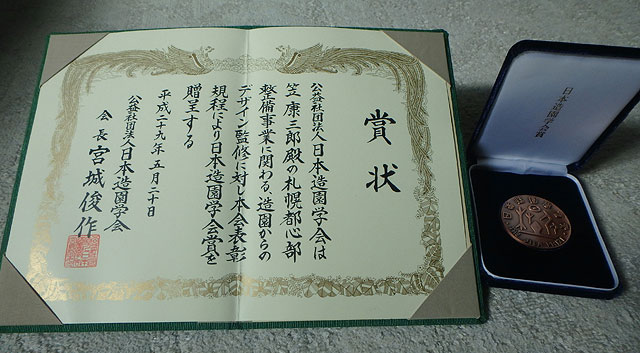 賞状
公益社団法人日本造園学会は
笠康三郎殿の札幌都心部
整備事業に関わる、造園からの
デザイン監修に対し本会表彰
規程により日本造園学会賞を
贈呈する
平成二十九年五月二十日
公益社団法人日本造園学会
会長 宮城俊作
日本造園学会賞